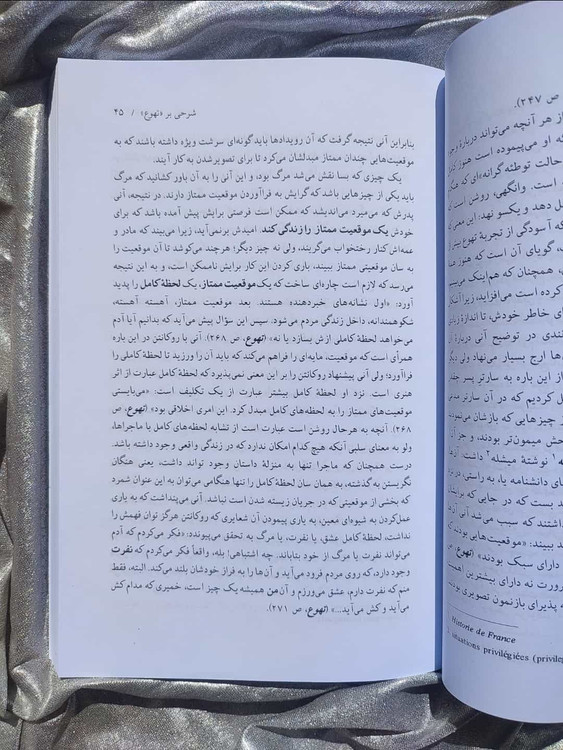 شرحی بر «تهوع» / ۴۵
بنابراین آنی نتیجه گرفت که آن رویدادها باید گونه‌ای سرشت ویژه داشته باشند که به
موقعیت‌هایی چندان ممتاز مبدلشان می‌کرد تا برای تصویر شدن به کار آیند.
یک چیزی که بسا نقش می‌شد مرگ بود، و این آنی را به آن باور کشانید که مرگ
باید یکی از چیزهایی باشد که گرایش به فراآوردن موقعیت ممتاز دارند. در نتیجه، آنی
پدرش که می‌میرد می‌اندیشد که ممکن است فرصتی برایش پیش آمده باشد که برای
خودش یک موقعیت ممتاز را زندگی کند. امیدش برنمی‌آید، زیرا می‌بیند که مادر و
عمه‌اش کنار رختخواب می‌گریند، ولی نه چیز دیگر؛ هرچند می‌کوشد تا آن موقعیت را
به سان موقعیتی ممتاز ببیند، باری کردن این کار برایش ناممکن است، و به این نتیجه
می‌رسد که لازم است چاره‌ای ساخت که یک موقعیت ممتاز، یک لحظهٔ کامل را پدید
آورد: «اول نشانه‌های خبردهنده هستند. بعد موقعیت ممتاز، آهسته آهسته،
شکوهمندانه، داخل زندگی مردم می‌شود. سپس این سؤال پیش می‌آید که بدانیم آیا آدم
می‌خواهد لحظهٔ کاملی ازش بسازد یا نه» (تهوع، ص ۲۶۸). آنی با روکانتن در این باره
همرأی است که موقعیت، مایه‌ای را فراهم می‌کند که باید آن را ورزید تا لحظهٔ کاملی را
فراآورد؛ ولی آنی پیشنهاد روکانتن را بر این معنی نمی‌پذیرد که لحظهٔ کامل عبارت از اثر
هنری است. نزد او لحظهٔ کامل بیشتر عبارت از یک تکلیف است: «می‌بایستی
موقعیت‌های ممتاز را به لحظه‌های کامل مبدل کرد. این امری اخلاقی بود» (تهوع، ص
۲۶۸). آنچه به هرحال روشن است عبارت است از تشابه لحظه‌های کامل با ماجراها،
ولو به معنای سلبی آنکه هیچ کدام امکان ندارد که در زندگی واقعی وجود داشته باشد.
درست همچنان که ماجرا تنها به منزلهٔ داستان وجود تواند داشت، یعنی هنگام
نگریستن به گذشته، به همان سان لحظهٔ کامل را تنها هنگامی می‌توان به این عنوان شمرد
که بخشی از موقعیتی که در جریان زیسته شدن است نباشد. آنی می‌پنداشت که به یاری
عمل‌کردن به شیوه‌ای معین، به یاری پیمودن آن شعایری که روکانتن هرگز توان فهمش را
نداشت، لحظهٔ کامل عشق، یا نفرت، یا مرگ به تحقق می‌پیوندد: «فکر می‌کردم که آدم
می‌تواند نفرت یا مرگ را از خود بتاباند. چه اشتباهی! بله، واقعاً فکر می‌کردم که نفرت
وجود دارد، که روی مردم فرود می‌آید و آن‌ها را به فراز خودشان بلند می‌کند. البته، فقط
منم که نفرت دارم، عشق می‌ورزم و آن من همیشه یک چیز است، خمیری که مدام کش
می‌آید و کش می‌آید...» (تهوع، ص ۲۷۱).
ص ۲۴۷).
از هر آنچه می‌تواند دربارهٔ
که او می‌پیموده است هنوز
حالت توطئه‌گرانه‌ای که
است. وانگهی، روشن است
دهد و یکسو نهد: این معنی
که آسودگی از تجربهٔ تهوع
گویای آن است که هنوز
همچنان که هم‌اینک می‌رسد
کرده است می‌افزاید، زیرا
خاطر خودش، تا اندازهٔ
در توضیح آنی دربارهٔ
ارج بسیار می‌نهاد ولی دیگر
از این باره به سارتر پسر
کردیم که در آن سارتر
از چیزهایی که بازشان می‌نمودند
میمون‌تر بودند، و جز
نوشتهٔ میشله² داشت.
دانشنامه یا، به راستی،
بست که در جایی که برایشان
داشتند که سبب می‌شد آنی
ببیند: «موقعیت‌هایی که
دارای سبک بودند» (تهوع،
نه دارای بیشترین
پذیرای بازنمون تصویری
Historie de France
situations privilégiées